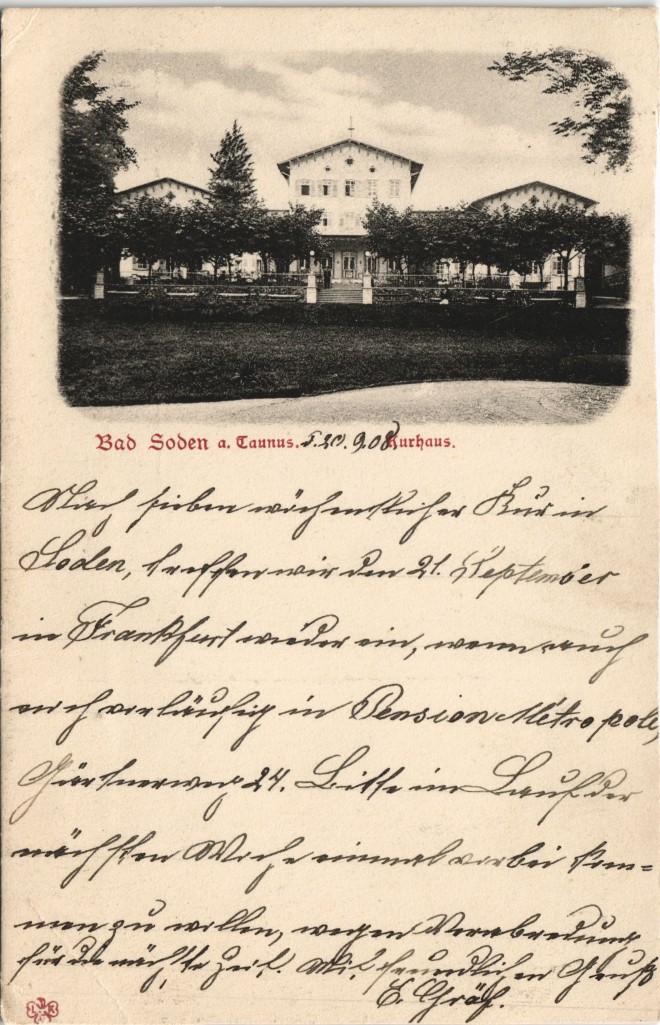 Bad Soden a. Taunus. S. 20. 9. 08 Kurhaus.
Nach sieben wöchentlicher Kur in
Soden, treffen wir den 21. September
in Frankfurt wieder ein, wenn auch
noch vorläufig in Pension Métropole,
Gärtnerweg 24. Bitte im Lauf der
nächsten Woche einmal vorbei kom=
men zu wollen, wegen Verabredung
für die nächste Zeit. Mit freundlichen Gruß
E. Gräf.